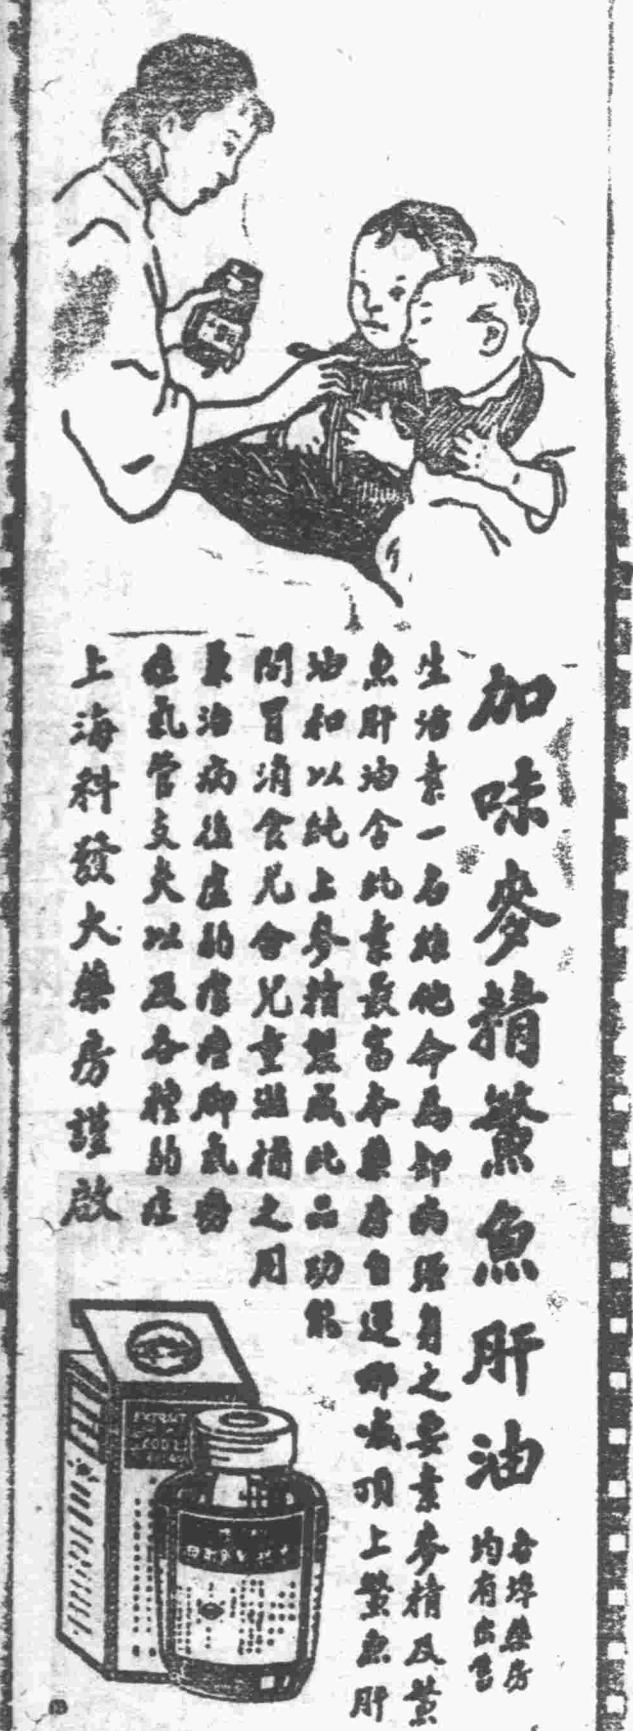 加味麥精鰵魚肝油
各埠藥房
均有出售
生活素一名維他命為卻病強身之要素麥精及鰵
魚肝油含此素最富本藥房自運挪威頂上鰵魚肝
油和以純上麥精製成此品功能
開胃消食兒童
兼治病後虛弱脚氣癆
症氣管支炎以及各種弱症
上海科發大藥房謹啟
EXTRACT
COD LI